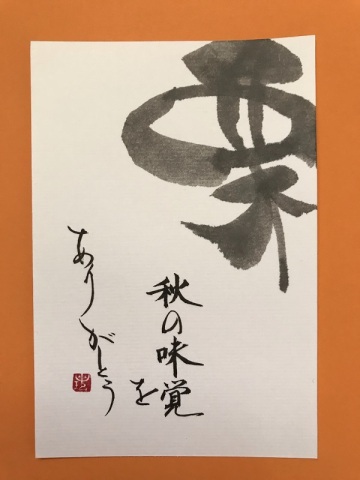 栗
秋の味覚を
ありがとう